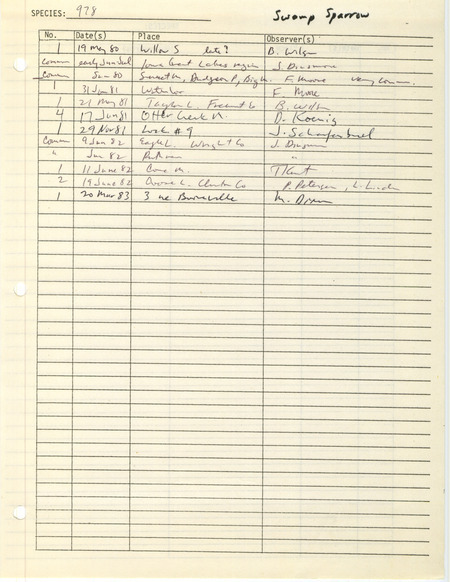 SPECIES: 978 Swamp Sparrow
No. Date(s) Place Observer(s)
1 19 May 80 Willow S late? B. Wilson
comm early Jun Jul Iowa Great Lakes region J. Dinsmore
comm Jun 80 Sunset L, Dudgeon P, Big M. F. Moore very comm.
1 31 Jan 81 F. Moore
1 21 May 81 Taylor L. Fremont Co B. Wilson
4 17 Jun 81 Otter Creek M. D. Koenig
1 29 Nov 81 Lock # 9 J. Schaufenbuel
comm 9 Jun 82 Eagle L. Wright Co J. Dinsmore
" Jun 82 "
1 11 June 82 Cone M. T Kent
2 19 June 82 Goose L. Clinton Co P. Petersen,
1 20 Mar 83 3 ne Burnsville M.